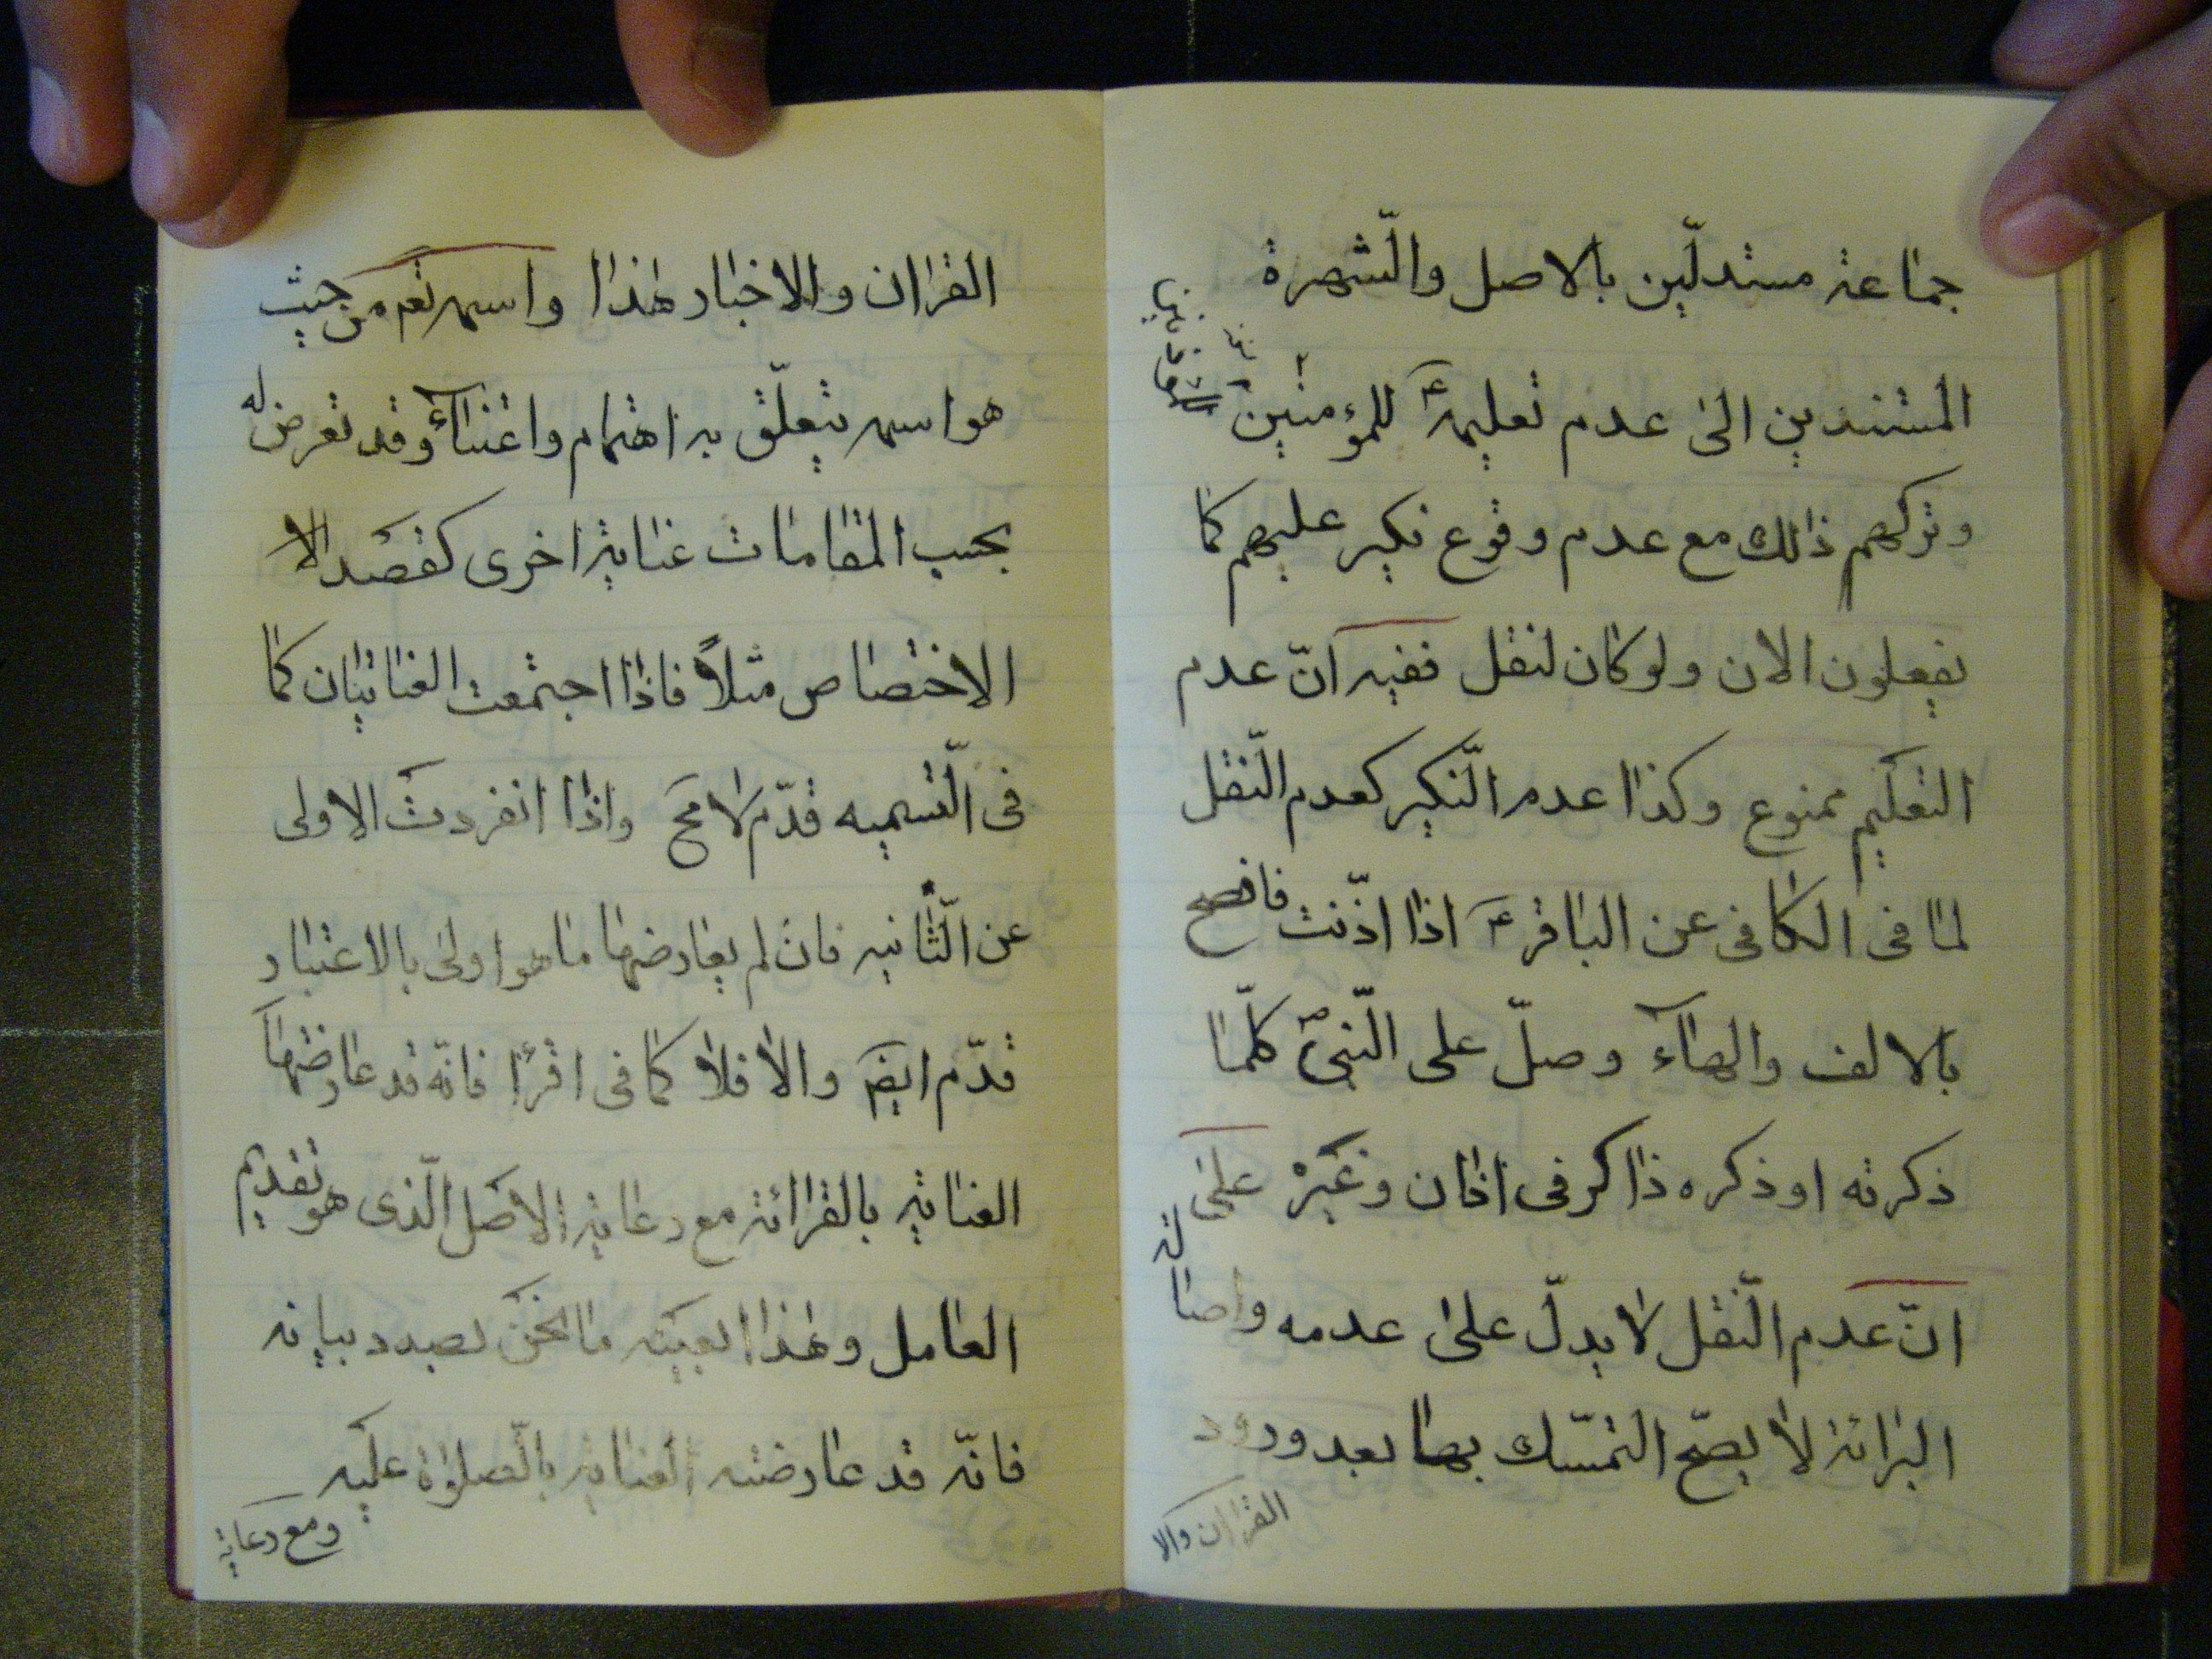 جماعة مستدلّين بالاصل والشّهرة
المستندين الى عدم تعليمهم ع للمؤمنين
وتركهم ذلك مع عدم وقوع نكير عليهم كما
يفعلون الان ولو كان لنقل ففيه انّ عدم
التعليم ممنوع وكذا عدم النّكير كعدم النّقل
لما فى الكافى عن الباقر ع اذا اذّنت فافصح
بالالف والهاء وصلّ على النّبىّ ص كلّما
ذكرته او ذكره ذاكر فى اذان وغيره على
انّ عدم النّقل لا يدلّ على عدمه واصالة
البرائة لا يصحّ التمسّك بها بعد ورود
القران والا
القران والاخبار هذا واسمه تعم من حيث
هو اسمه يتعلّق به اهتمام واعتناء وقد تعرض له
بحسب المقامات عناية اخرى كقصد الا
الاختصاص مثلاً فاذا اجتمعت العنايتان كما
فى التّسميه قدّم لا مح واذا انفردت الاولى
عن الثّانيه فان لم يعارضها ما هو اولى بالاعتبار
قدّم ايضا والا فلا كما فى اقرأ فانّه قد عارضتها
العناية بالقرائة مع رعاية الاصل الّذى هو تقديم
العامل وهذا بعينه ما نحن بصدد بيانه
فانّه قد عارضته العناية بالصّلوة عليه
ومع رعاية